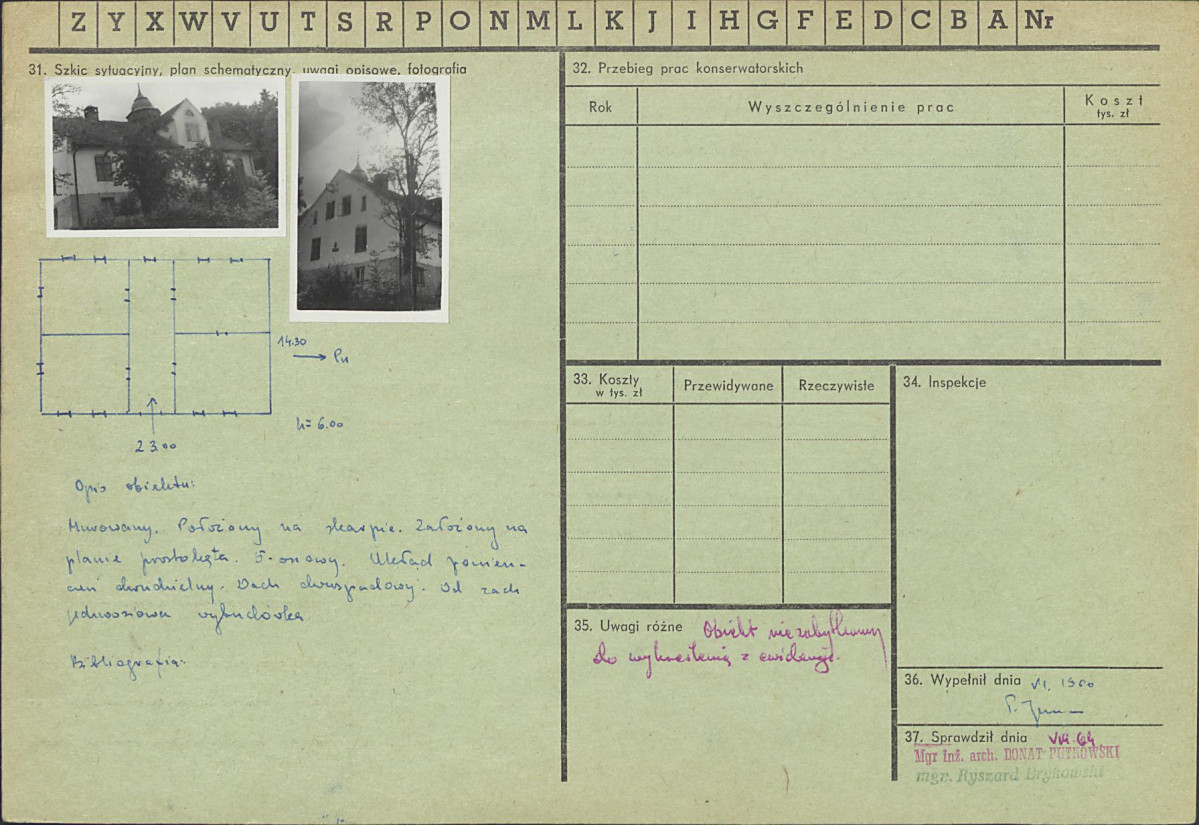 Z Y X W V U T S R P O N M L K J I H G F E D C B A Nr
31. Szkic sytuacyjny, plan schematyczny, uwagi opisowe, fotografia
14.30
Pn
h= 6.00
23.00
Opis obiektu:
Murowany. Położony na skarpie. Założony na
planie prostokąta. 5-osiowy. Układ pomiesz-
czeń dwudzielny. Dach dwuspadowy. Od zach
jednoosiowa wybudówka
Bibliografia:
32. Przebieg prac konserwatorskich
Rok
Wyszczególnienie prac
Koszt
tys. zł
33. Koszty
w tys. zł
Przewidywane
Rzeczywiste
34. Inspekcje
35. Uwagi różne Obiekt niezabytkowy
do wykreślenia z ewidencji.
36. Wypełnił dnia VI. 1960
37. Sprawdził dnia VIII 64
Mgr Inż. arch. DONAT PUTKOWSKI
mgr. Ryszard Brykowski